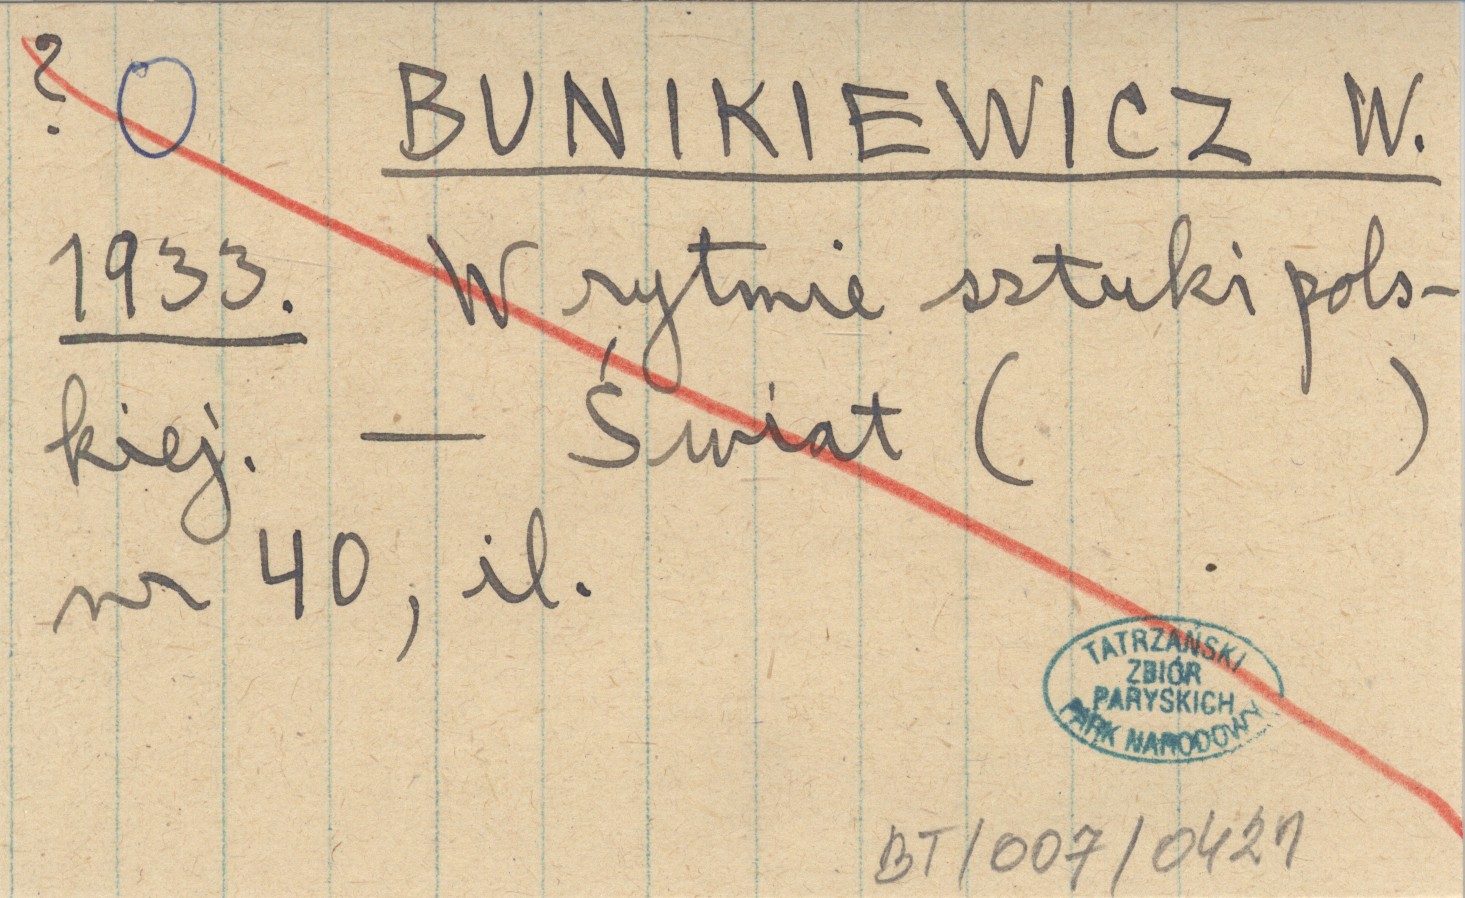 ? O BUNIKIEWICZ W.
1933. W rytmie sztuki pols-
kiej. — Świat ( )
nr 40, il.
TATRZAŃSKI
ZBIÓR
PARYSKICH
PARK NARODOWY
BT/007/0421